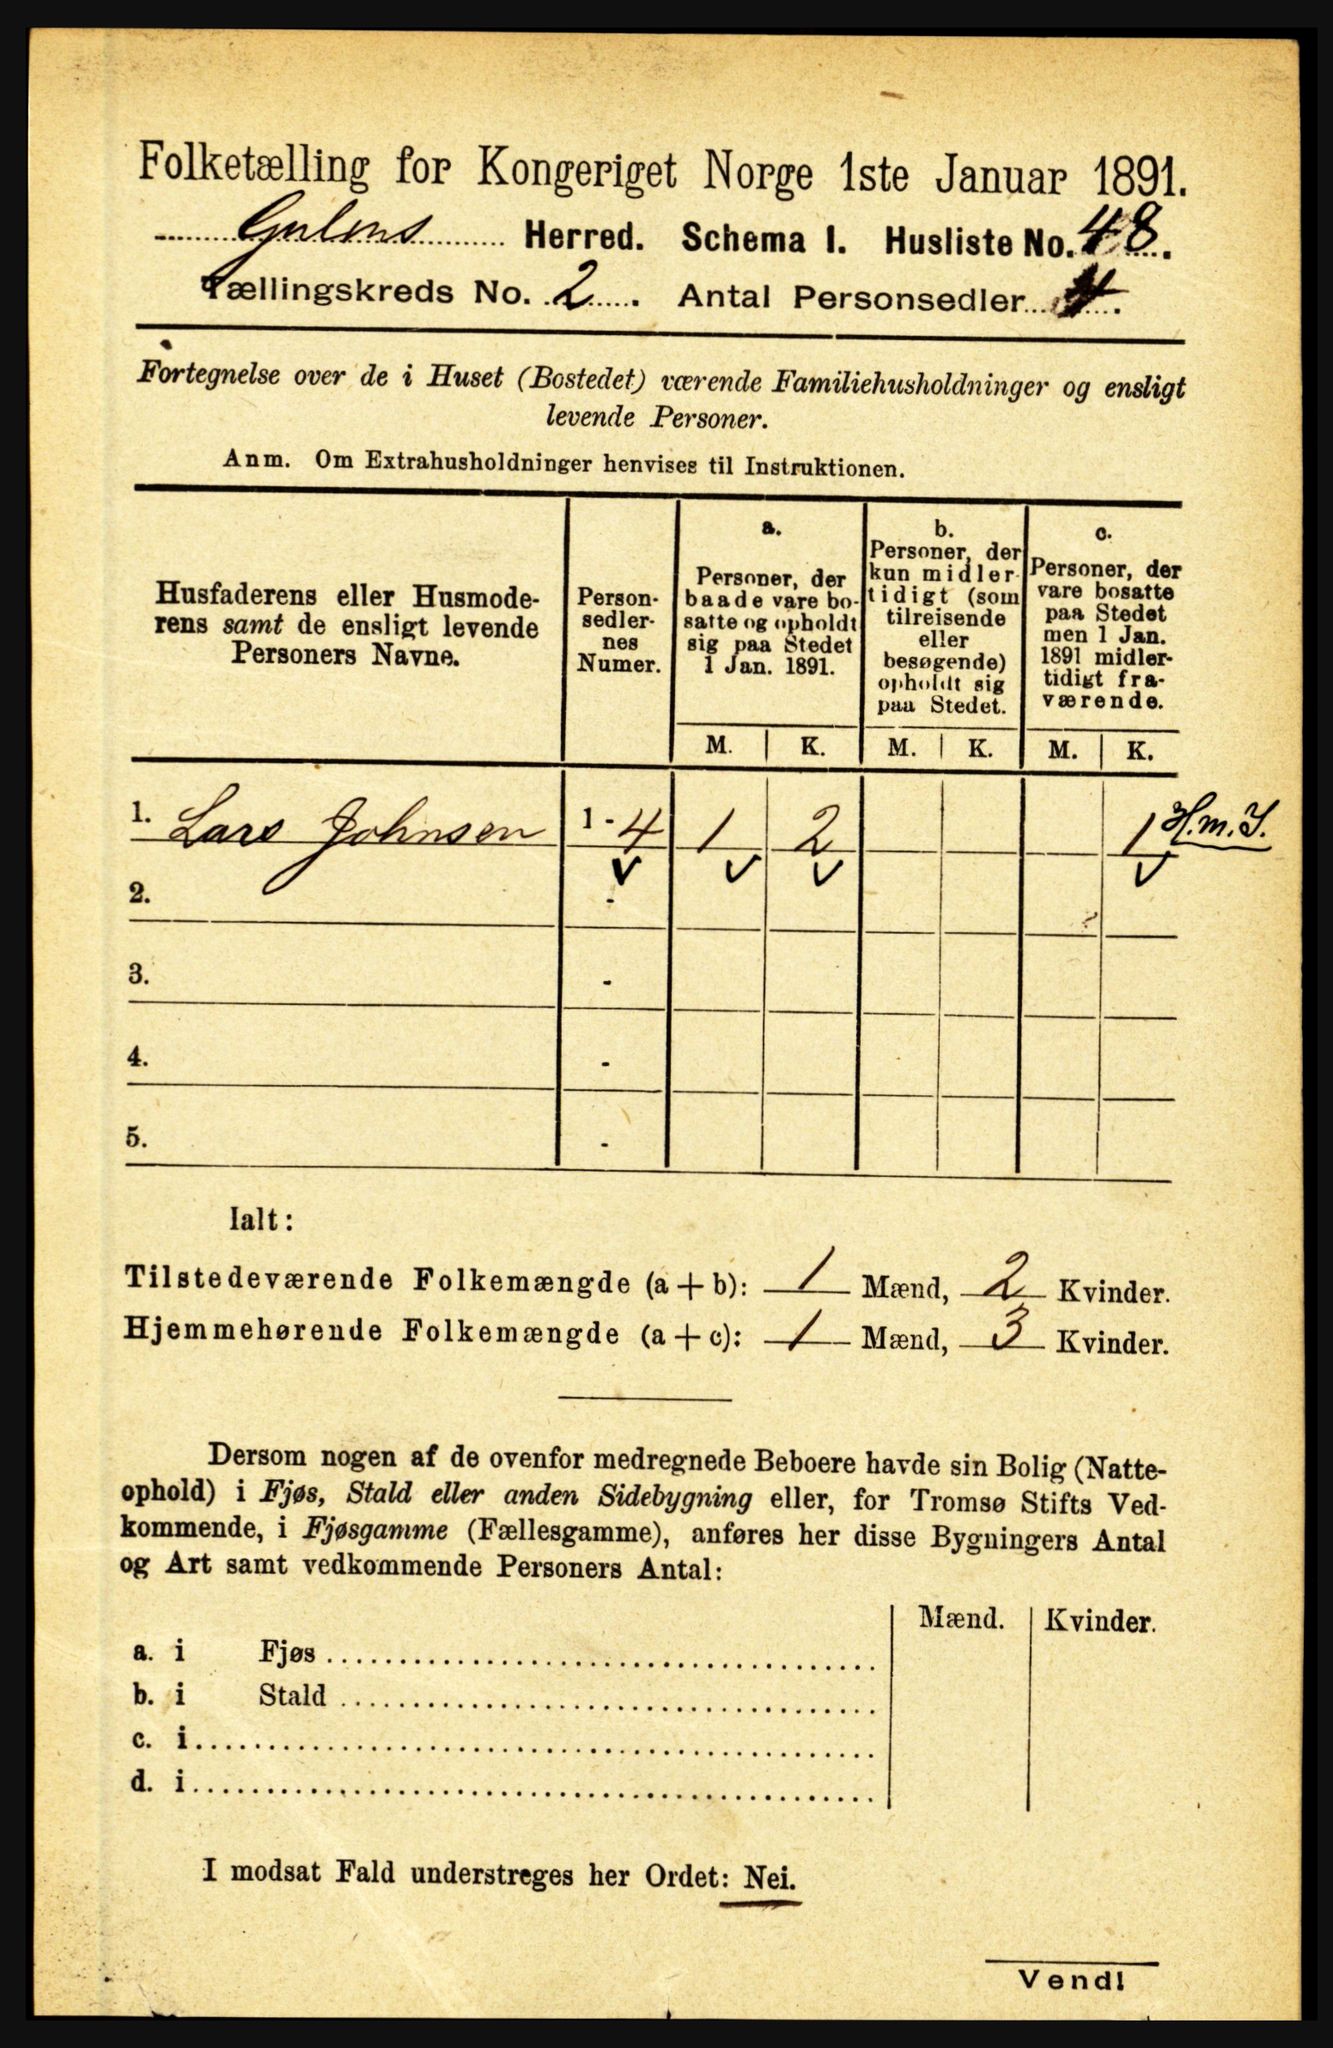 Folketælling for Kongeriget Norge 1ste Januar 1891.
Gulens Herred. Schema I. Husliste No. 48.
Tællingskreds No. 2. Antal Personsedler 4.
Fortegnelse over de i Huset (Bostedet) værende Familiehusholdninger og ensligt
levende Personer.
Anm. Om Extrahusholdninger henvises til Instruktionen.
Husfaderens eller Husmode-
rens samt de ensligt levende
Personers Navne.
Person-
sedler-
nes
Numer.
a.
Personer, der
baade vare bo-
satte og opholdt
sig paa Stedet
1 Jan. 1891.
b.
Personer, der
kun midler-
tidigt (som
tilreisende
eller
besøgende)
opholdt sig
paa Stedet.
c.
Personer, der
vare bosatte
paa Stedet
men 1 Jan.
1891 midler-
tidigt fra-
værende.
M. K. M. K. M. K.
1. Lars Johnsen 1 - 4 1 2 1 H.m.I.
2. -
3. -
4. -
5. -
Ialt:
Tilstedeværende Folkemængde (a + b): 1 Mænd, 2 Kvinder.
Hjemmehørende Folkemængde (a + c): 1 Mænd, 3 Kvinder.
Dersom nogen af de ovenfor medregnede Beboere havde sin Bolig (Natte-
ophold) i Fjøs, Stald eller anden Sidebygning eller, for Tromsø Stifts Ved-
kommende, i Fjøsgamme (Fællesgamme), anføres her disse Bygningers Antal
og Art samt vedkommende Personers Antal:
Mænd. Kvinder.
a. i Fjøs
b. i Stald
c. i
d. i
I modsat Fald understreges her Ordet: Nei.
Vend!